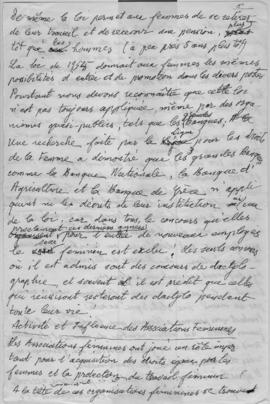 De même la loi permet aux femmes de se retirer
de leur travail et de recevoir une pension, plus
tôt que les hommes (à peu près 5 ans plus tôt)
La loi de 1955 donnait aux femmes les mêmes
possibilités d'entrée et de promotion dans les divers postes
Pourtant nous devons reconnaître que cette loi
n'est pas toujours appliquée, même par des orga
nismes quasi-publics, tels que les grandes Banques,
Une recherche faite par la Ligue pour les Droits
de la Femme a démontré que les grandes Banques
comme la Banque Nationale, la Banque d'
Agriculture et la Banque de Grèce n'appli
quent ni les décrets de leur institution même
ni de la loi, car dans tous les concours qu'elles
proclament ces dernières années
pour l'entrée de nouveaux employés
le sexe féminin est exclu. Les seuls concours
où il est admis sont des concours de dactylo
graphes, et souvent il est prédit que celles
qui réussiront resteront des dactylo pendant
toute leur vie.
Activité et Influence des Associations Féminines
Les Associations féminines ont joué un rôle impor
tant pour l'acquisition des droits égaux par les
femmes et la protection du travail féminin
A la tête de ces organisations féminines se trouvent